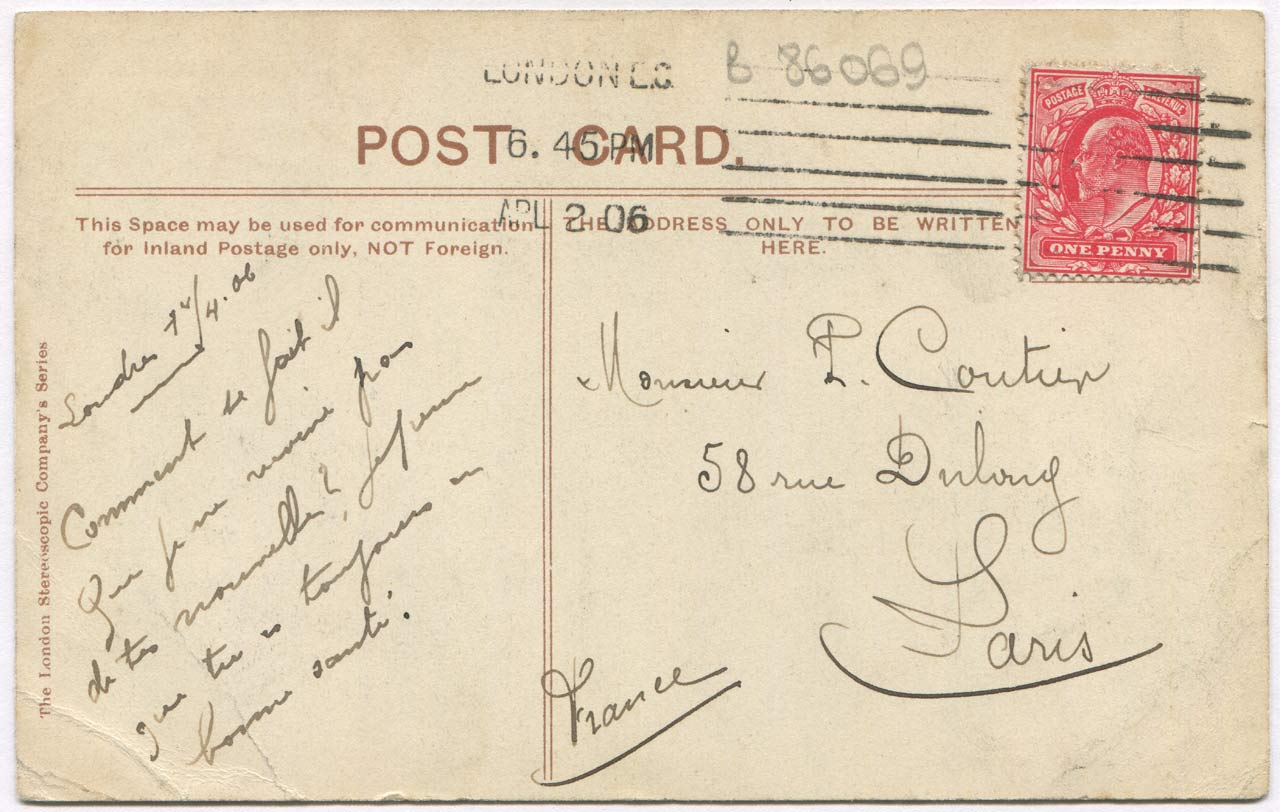 LONDON E.C.
B 86069
POST CARD.
6. 45 PM
APL 2 06
POSTAGE REVENUE
ONE PENNY
This Space may be used for communication
for Inland Postage only, NOT Foreign.
THE ADDRESS ONLY TO BE WRITTEN
HERE.
The London Stereoscopic Company's Series
Londres 1er/4.06
Comment se fait il
que je ne reçoive pas
de tes nouvelles?
que tu es toujours en
bonne santé.
Monsieur P. Coutier
58 rue Dulong
Paris
France